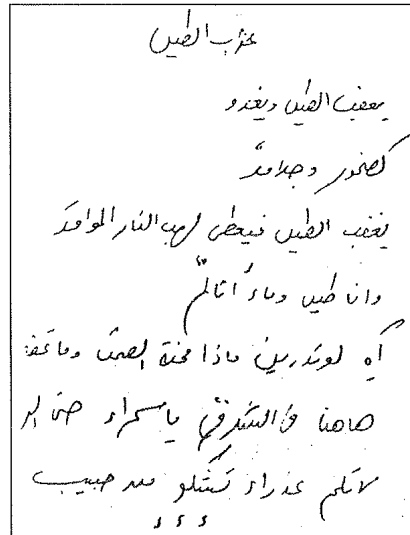 غضب الطين
يغضب الطين ويغدو
كصخور وجلامد
يغضب الطين فيعطى لهب النار المواقد
وانا طين وماءٌ أتألم
آه لو تدرين ماذا محنة الصمت وما
هاهنا في الشرق يا سمراء حتى
عذراء تشكو من حبيب